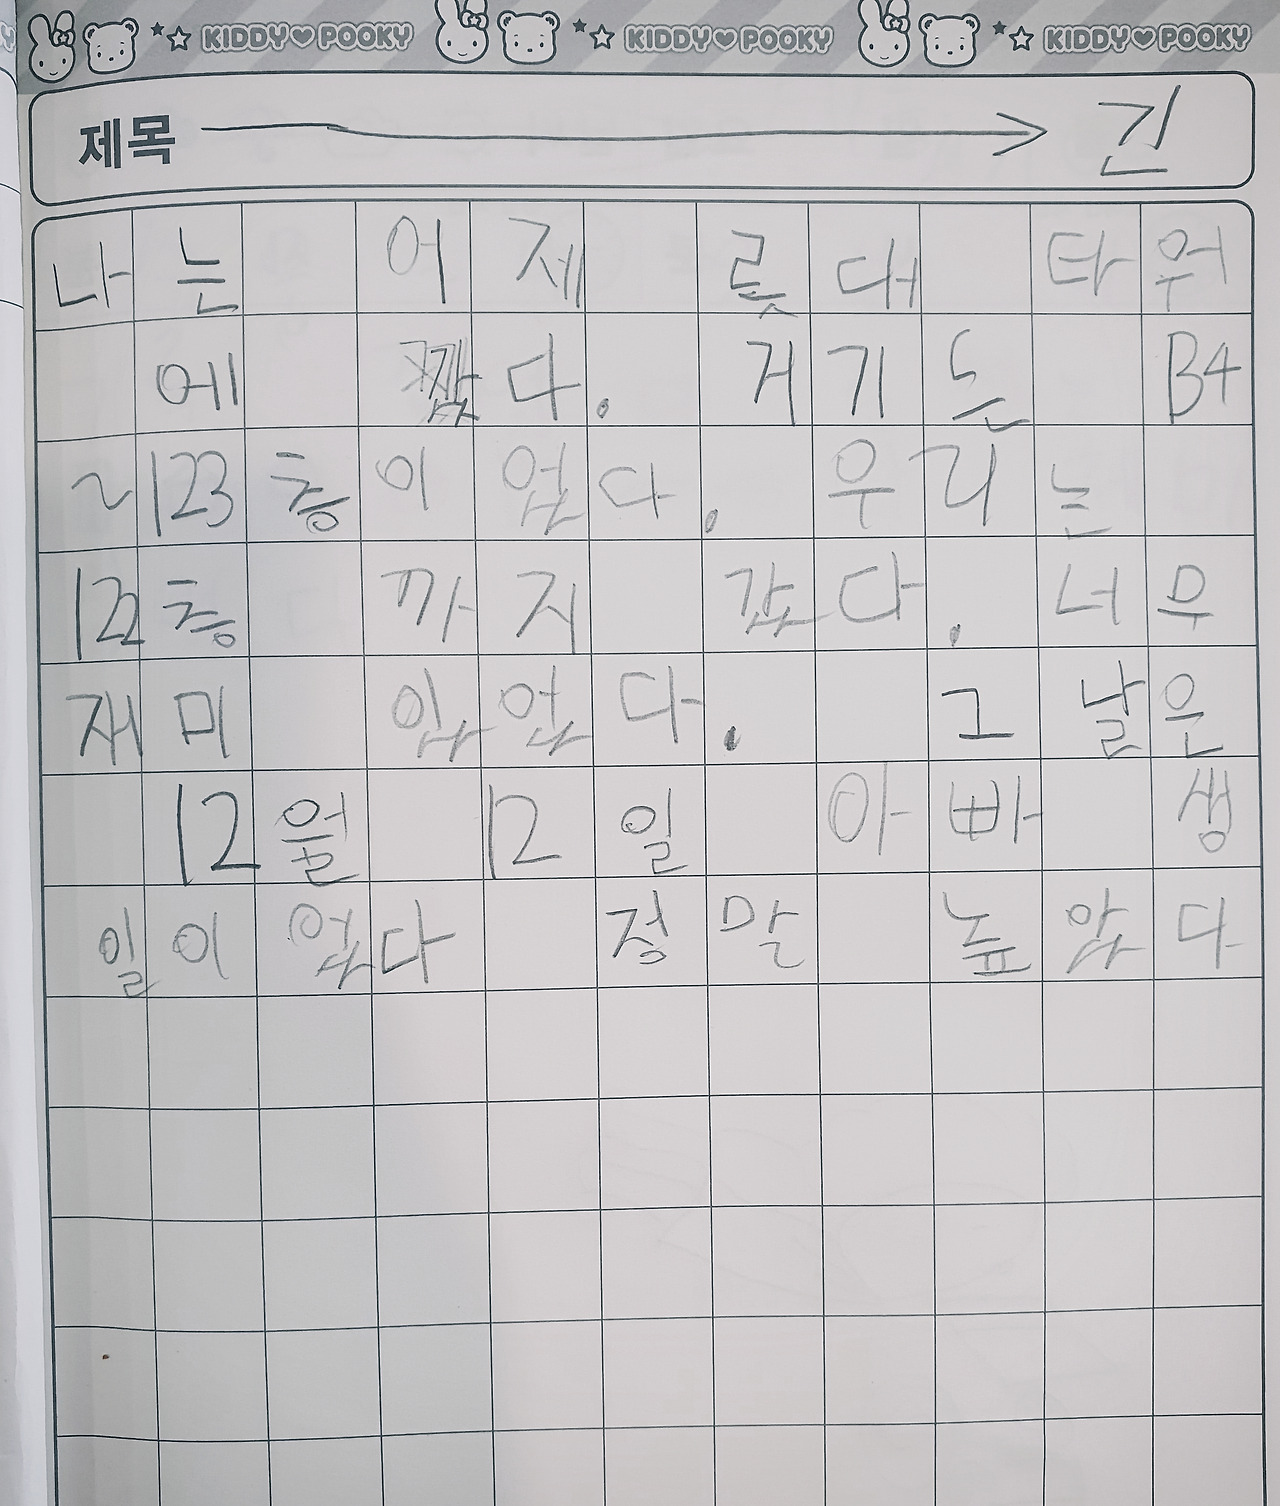 KIDDY♥POOKY KIDDY♥POOKY KIDDY♥POOKY
제목 → 긴
나는 어제 롯대 타워
에 갔다. 거기는 B4
~123층이 었다. 우리는
122층 까지 갔다. 너무
재미 있었다. 그 날은
12월 12일 아빠 생
일이 었다 정말 높았다